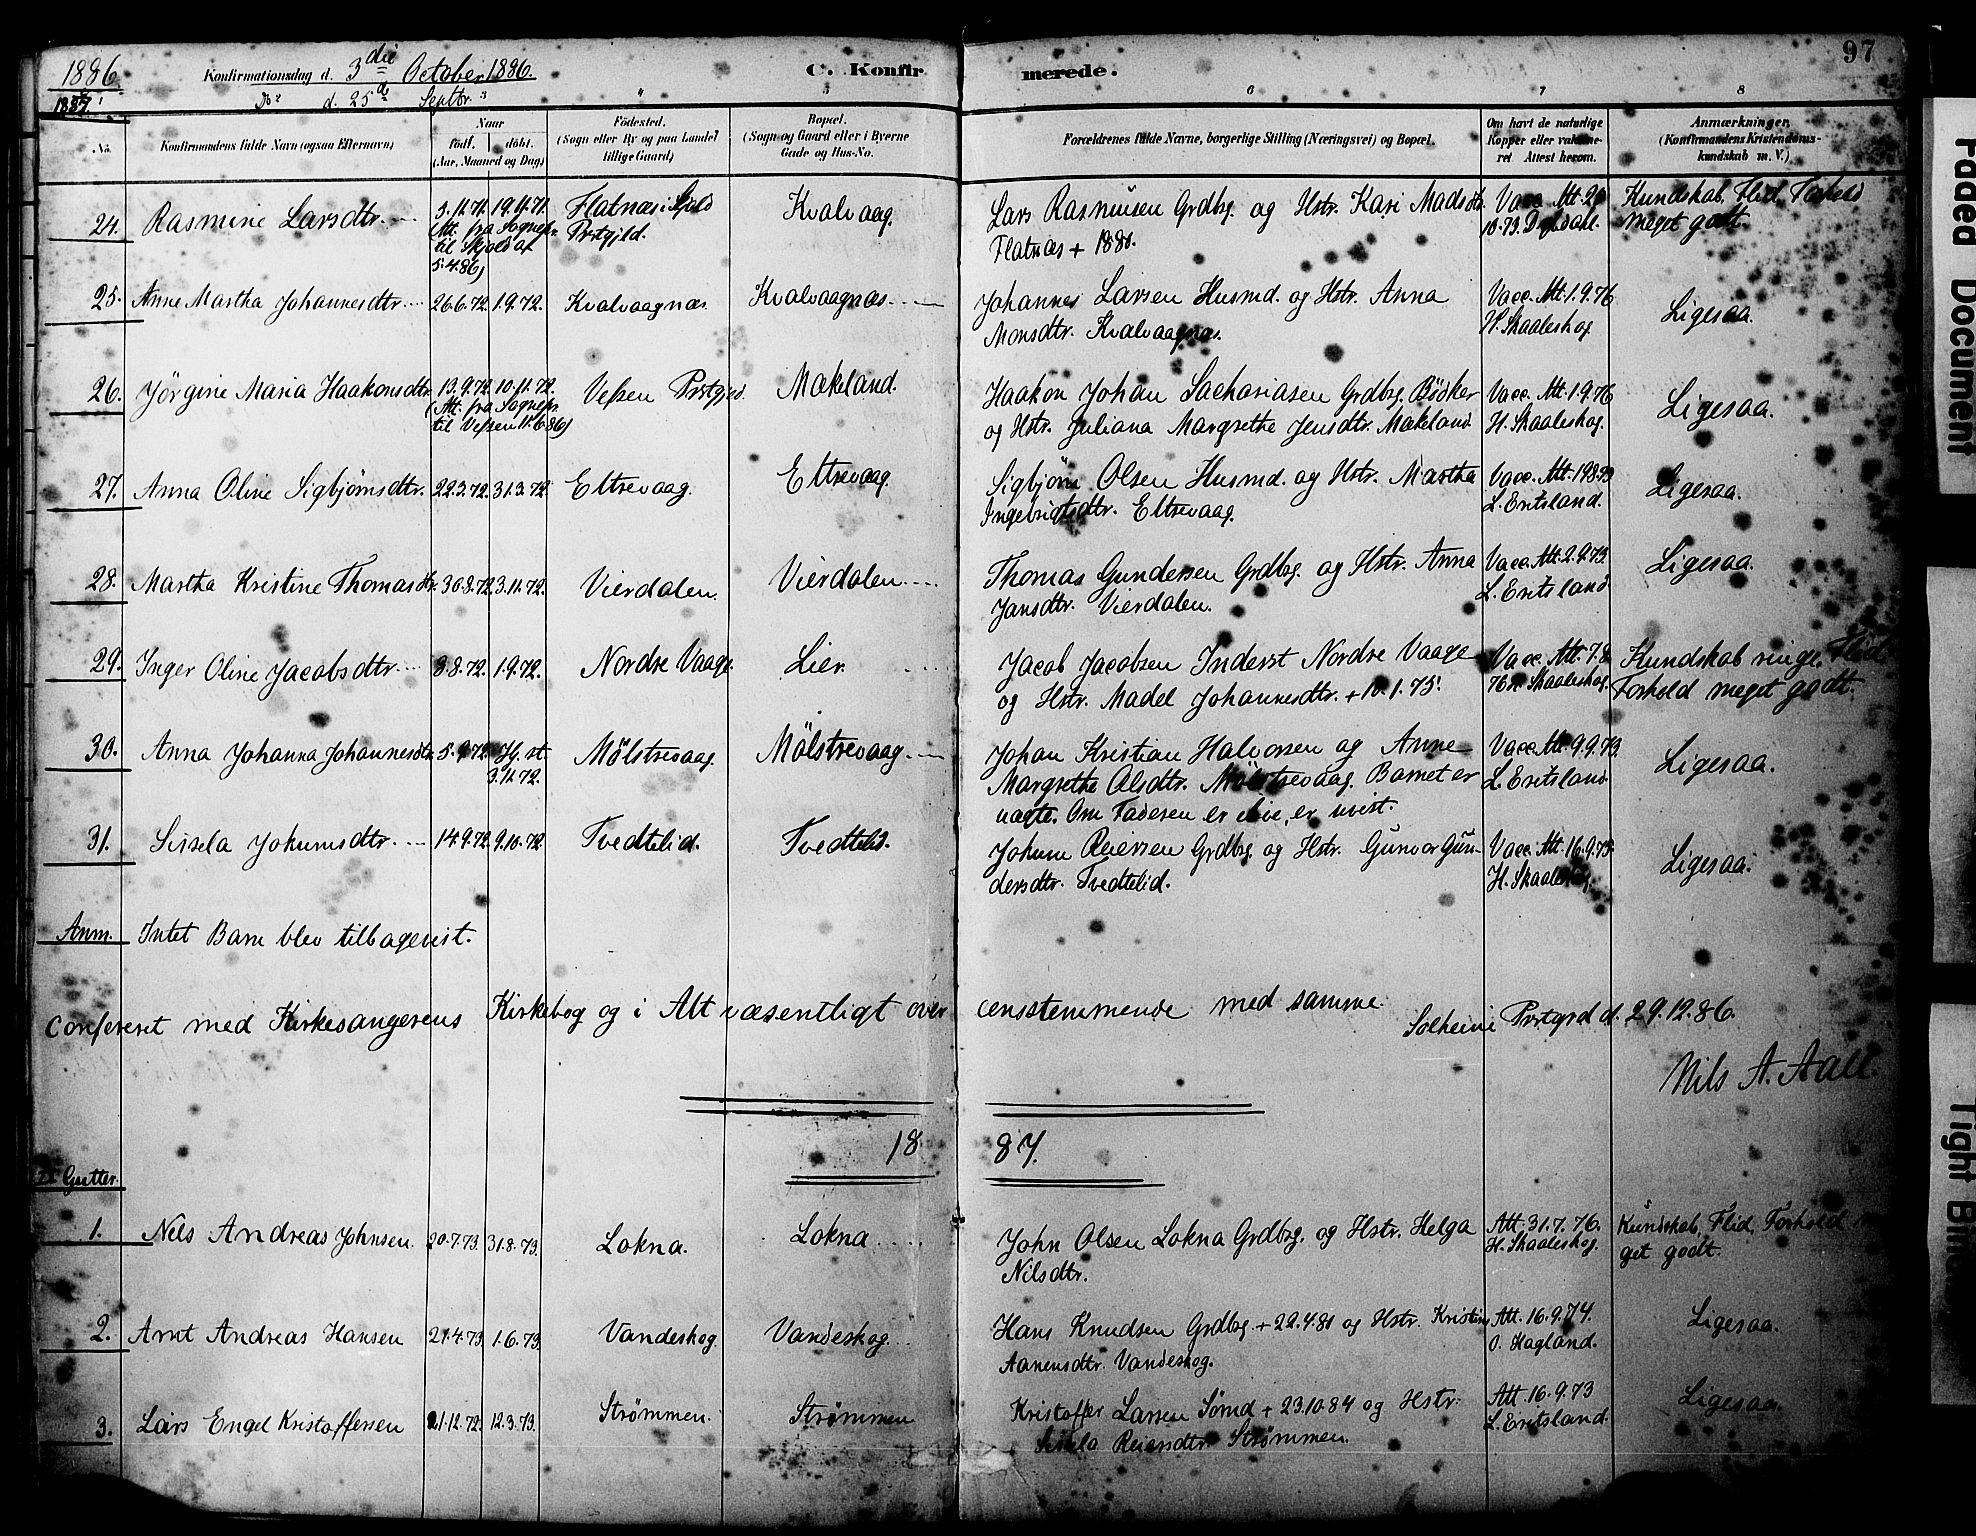 1886 Konfirmationsdag d. 3die October 1886. C. Konfirmerede. 97
1887. Do d. 25de Septbr.
No. Konfirmandens fulde Navn (ogsaa Efternavn) Naar födt. döbt. (Aar, Maaned og Dag) Födested. (Sogn eller By og paa Landet tillige Gaard) Bopæl. (Sogn og Gaard eller i Byerne Gade og Hus-No. Forældrenes fulde Navne, borgerlige Stilling (Næringsvei) og Bopæl. Om havt de naturlige Kopper eller vaccineret Attest herom. Anmærkninger. (Konfirmandens Kristendomskundskab m. V.)
24. Rasmine Larsdtr. 5.11.71. 19.11.71. Flatnæs i Skjold Kvalvaag. Lars Rasmusen Grdbrg. og Hstr. Kari Madsdtr. Vacc. Att. Kundskab, Flid, Forhold
(Att. fra Sognepr. til Skjold af 5.4.86) Prstgjld. Flatnæs + 1881. 10.73. meget godt.
25. Anne Martha Johannesdtr. 26.6.72. 1.9.72. Kvalvaagnæs. Kvalvaagnæs. Johannes Larsen Husmd. og Hstr. Anna Vacc. Att. 1.9.76 Ligesaa.
Monsdtr. Kvalvaagnæs. H. Skaaleskog.
26. Jörgine Maria Haakonsdtr. 13.9.72. 10.11.72. Vefsen Prstgjeld. Mækeland. Haakon Johan Sachariasen Grdbrg. Bödker Vacc. Att. 1.9.76 Ligesaa.
(Att. fra Sognepr. til Vefsen 11.6.86) og Hstr. Juliana Margrethe Jensdtr. Mækeland. H. Skaaleskog.
27. Anna Oline Sigbjörnsdtr. 22.3.72. 31.3.72. Eltrevaag. Eltrevaag. Sigbjörn Olsen Husmd. og Hstr. Martha Vacc. Att. Ligesaa.
Ingebrigtsdtr. Eltrevaag. L. Eritsland.
28. Martha Kristine Thomasdtr. 30.8.72. 3.11.72. Vierdalen. Vierdalen. Thomas Gundersen Grdbrg. og Hstr. Anna Vacc. Att. 2.9.73. Ligesaa.
Jansdtr. Vierdalen. L. Eritsland.
29. Inger Oline Jacobsdtr. 8.8.72. 1.9.72. Nordre Vaage. Lier. Jacob Jacobsen Inderst Nordre Vaage Vacc. Att. 7.8. Kundskab ringe. Flid
og Hstr. Madel Johannesdtr. + 10.1.75. 76 H. Skaaleskog. Forhold meget godt.
30. Anna Johanna Johannesdtr. 5.9.72. Hj. st. 3.11.72. Mölstrevaag. Mölstrevaag. Johan Kristian Halvorsen og Anne Vacc. Att. 9.9.73. Ligesaa.
Margrethe Olsdtr. Mölstrevaag. Barnet er L. Eritsland
uægte. Om Faderen er i live, er uvist.
31. Sissela Jokumsdtr. 14.9.72. 9.10.72. Tvedtelid. Tvedtelid. Jokum Reiersen Grdbrg. og Hstr. Gunvor Gun- Vacc. Att. 16.9.75. Ligesaa.
dersdtr. Tvedtelid. H. Skaaleskog.
Anm. Intet Barn blev tilbagevist.
Confereret med Kirkesangerens Kirkebog og i Alt væsentligt overeensstemmende med samme. Solheim Prstgrd d. 29.12.86.
Nils A. Aall.
1887.
Gutter.
1. Nels Andreas Johnsen. 20.7.73. 31.8.73. Lokna. Lokna. John Olsen Lokna Grdbrg. og Hstr. Helga Att. 31.7.76. Kundskab, Flid, Forhold
Nilsdtr. H. Skaaleskog. get godt.
2. Arnt Andreas Hansen 21.4.73. 1.6.73. Vandeskog. Vandeskog. Hans Knudsen Grdbrg. + 22.4.81 og Hstr. Kristine Att. 16.9.74. Ligesaa.
Aanensdtr. Vandeskog. O. Hagland.
3. Lars Engel Kristoffersen 21.12.72. 12.3.73. Strømmen. Strømmen Kristoffer Larsen Sömd + 23.10.84 og Hstr. Att. 16.9.73 Ligesaa.
Sissela Reiersdtr. Strømmen. L. Eritsland.
Faded Document
Tight Bin